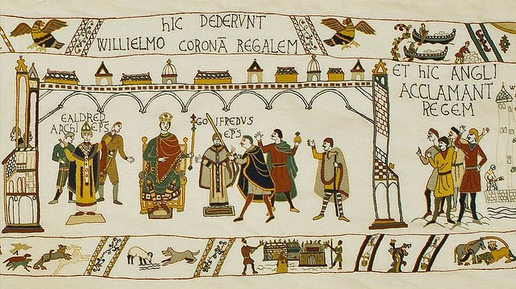 hIC DEDERVNT
WILLIELMO CORONĀ REGALEM
EALDRED
ARCHIEPS
GOIFREDVS
EPS
ET hIC ANGLI
ACCLAMANT
REGEM